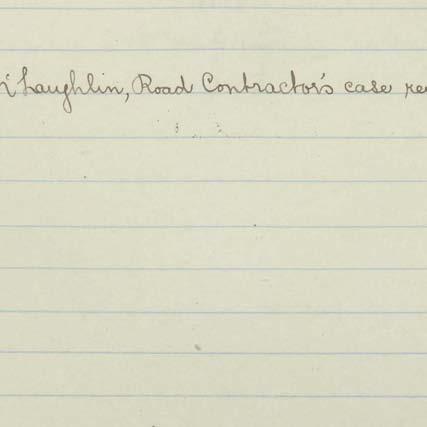 McLaughlin, Road Contractor's case re